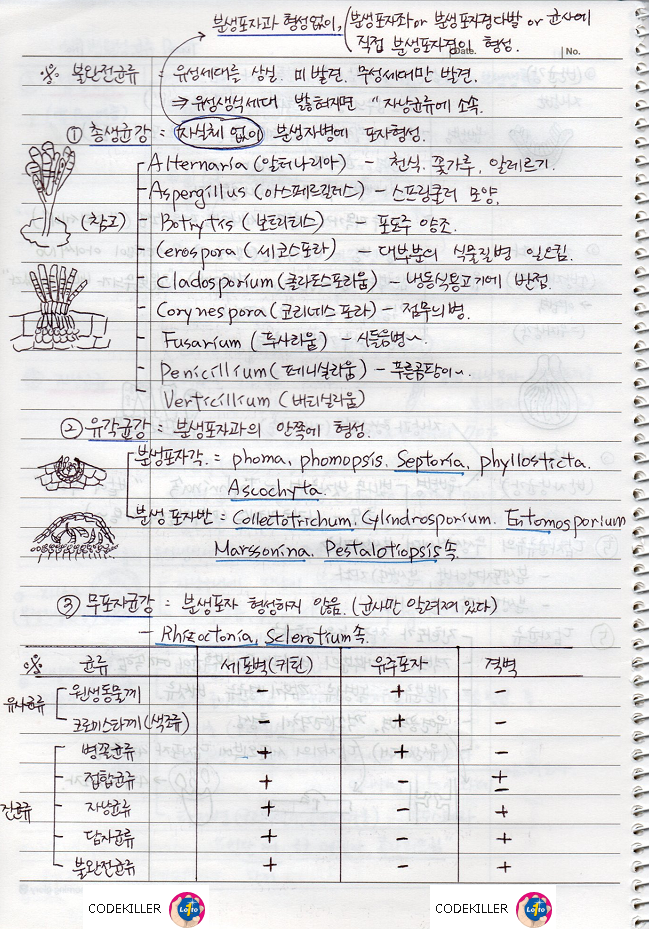 분생포자과 형성없이, (분생포자좌 or 분생포자경다발 or 균사에
직접 분생포자경이 형성.
Date. No.
※ 불완전균류 = 유성세대를 상실. 미발견. 무성세대만 발견.
⇒ 유성생식세대 밝혀지면 "자낭균류에 소속.
① 총생균강 = 자실체 없이 분생자병에 포자형성.
Alternaria (알터나리아) - 천식. 꽃가루, 알레르기.
Aspergillus (아스페르길러스) - 스프링쿨러 모양.
(참고) Botrytis (보트리티스) - 포도주 양조.
Cerospora (세코스포라) - 대부분의 식물질병 일으킴.
Cladosporium (클라도스포리움) - 냉동식용고기에 반점.
Corynespora (코리네스포라) - 점무늬병.
Fusarium (푸사리움) - 시들음병~.
Penicillium (페니실리움) - 푸른곰팡이~.
Verticillium (버티실리움)
② 유각균강 = 분생포자과의 안쪽에 형성.
분생포자각. = phoma, phomopsis. Septoria, phyllosticta.
Ascochyta.
분생포자반 = Collectotrichum. Cylindrosporium. Entomosporium
Marssonina. Pestalotiopsis속.
③ 무포자균강 = 분생포자 형성하지 않음. (균사만 알려져 있다)
- Rhizoctonia, Sclerotium속.
※ 균류 세포벽(키틴) 유주포자 격벽
유사균류 원생동물끼 - + -
크로미스타끼(색조류) - + -
진균류 병꼴균류 + + -
접합균류 + - ±
자낭균류 + - +
담자균류 + - +
불완전균류 + - +
CODEKILLER Lotto CODEKILLER Lotto